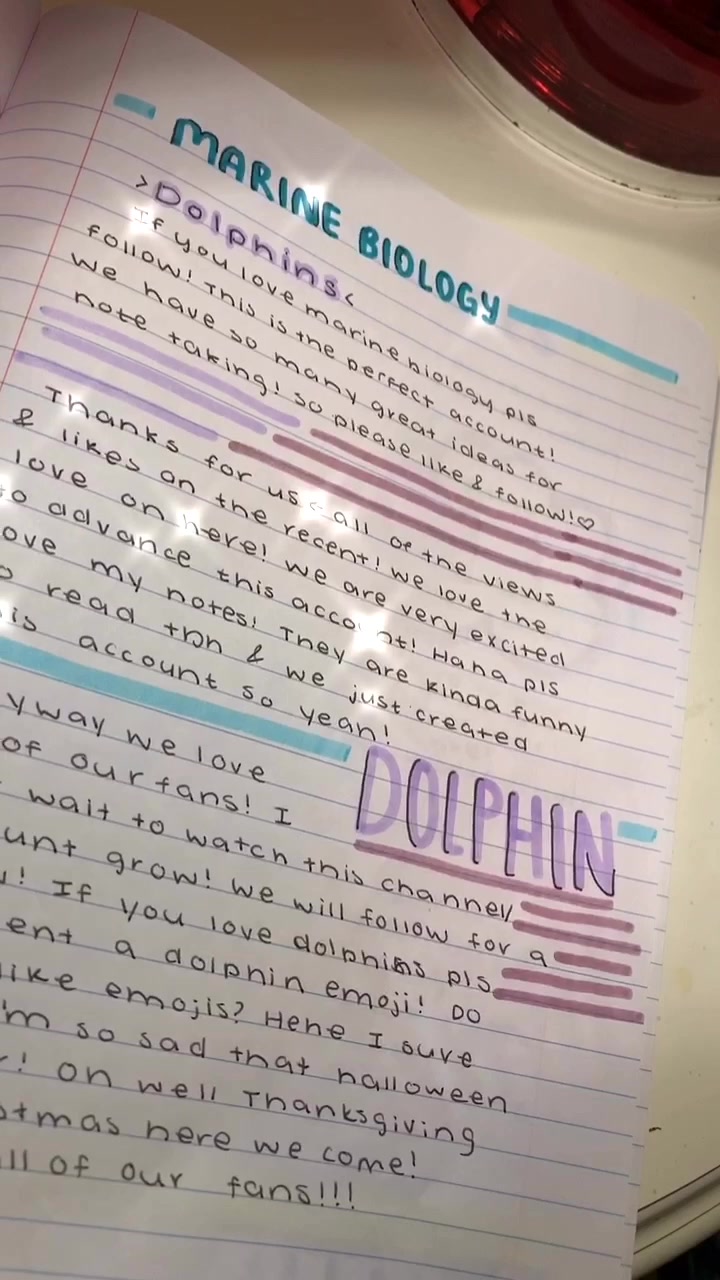 MARINE BIOLOGY
>Dolphins<
If you love marine biology pls
follow! This is the perfect account!
We have so many great ideas for
note taking! so please like & follow!♡
Thanks for us all of the views
& likes on the recent! we love the
love on here! we are very excited
to advance this account! Haha pls
ove my notes! They are kinda funny
read & we just created
is account so yeah!
yway we love
of our fans! I
DOLPHIN
wait to watch this channel
unt grow! we will follow for a
! If you love dolphins pls
ent a dolphin emoji! DO
like emojis? Hehe I sure
'm so sad that halloween
! oh well Thanksgiving
stmas here we come!
ll of our fans!!!